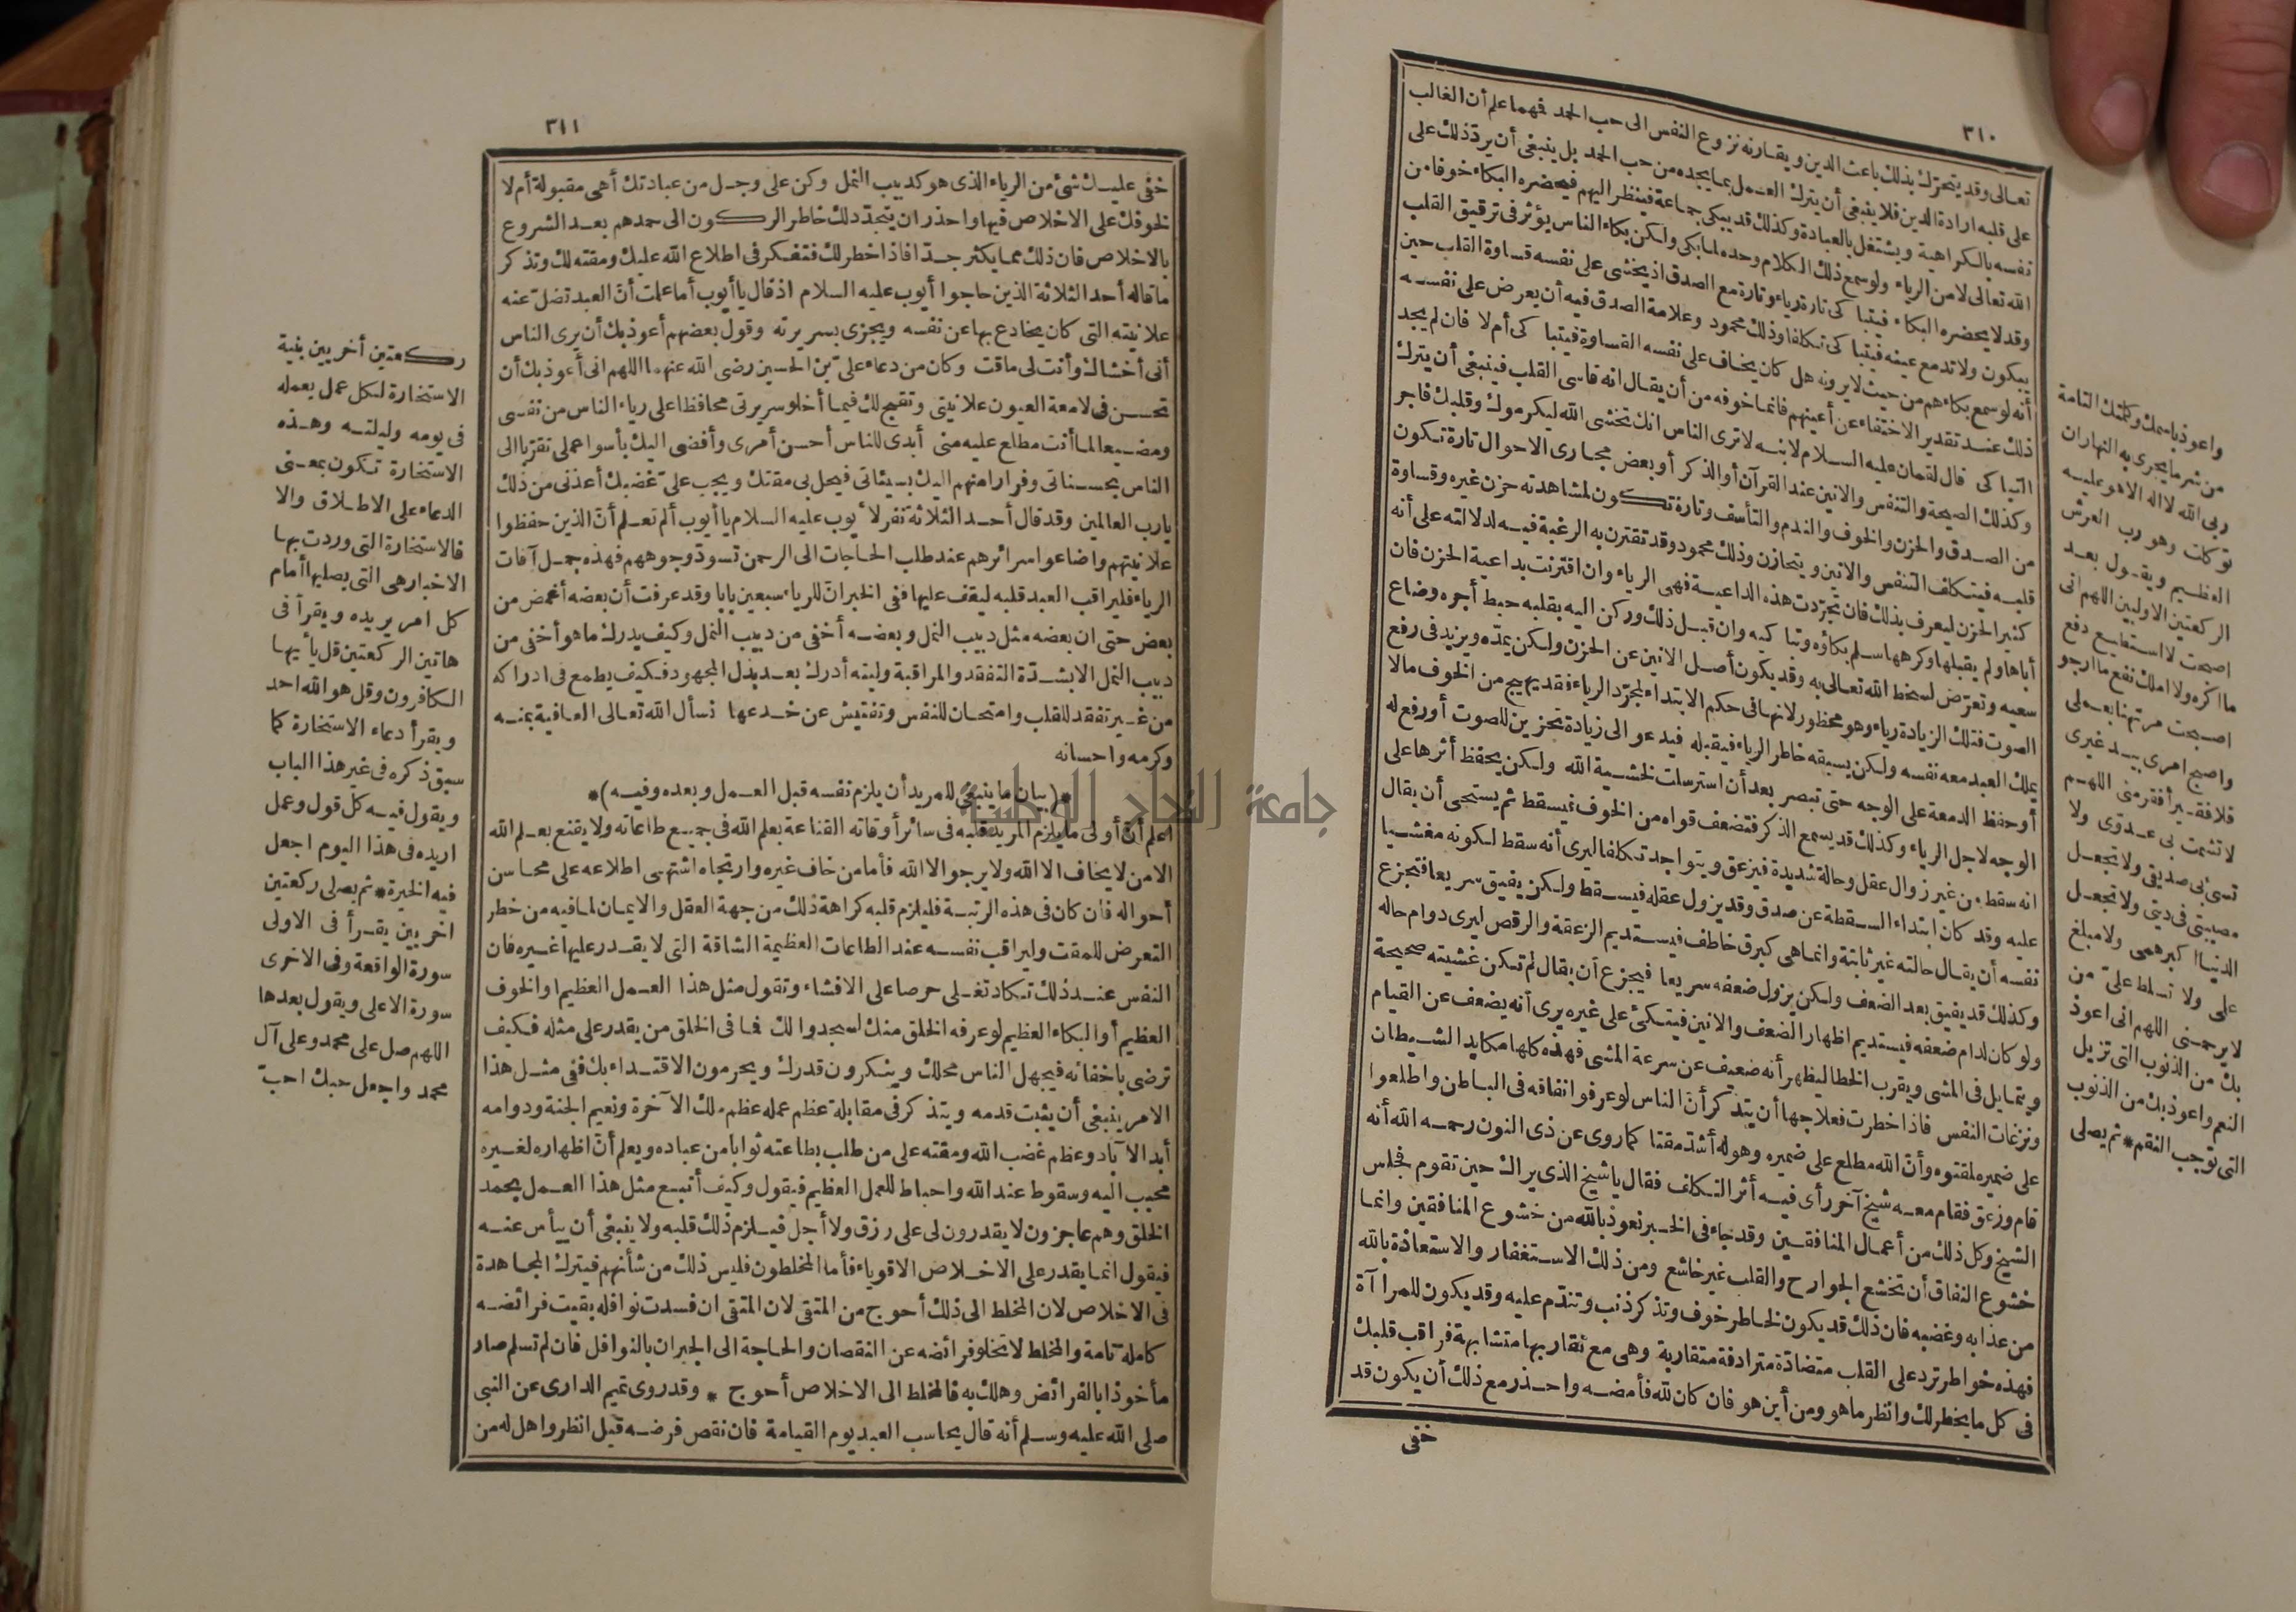 ٣١٠
تعالى وقد يتحرك بذلك باعث الدين ويقارنه نزوع النفس الى حب الحمد فهما علم أن الغالب
على قلبه ارادة الدين فلا ينبغى أن يترك العمل بما يجده من حب الحمد بل ينبغى أن يردّ ذلك على
نفسه بالكراهية ويشتغل بالعبادة وكذلك قد يبكى جماعة فينظر اليهم فيحضره البكاء خوفا من
الله تعالى لا من الرياء ولو سمع ذلك الكلام وحده لما بكى ولكن بكاء الناس يؤثر فى ترقيق القلب
وقد لا يحضره البكاء فيتباكى تارة رياء وتارة مع الصدق اذ يخشى على نفسه قساوة القلب حين
يبكون ولا تدمع عينه فيتباكى تكلفا وذلك محمود وعلامة الصدق فيه أن يعرض على نفسه
أنه لو سمع بكاءهم من حيث لا يرونه هل كان يخاف على نفسه القساوة فيتباكى أم لا فان لم يجد
ذلك عند تقدير الاختفاء عن أعينهم فانما خوفه من أن يقال انه قاسى القلب فينبغى أن يترك
التباكى قال لقمان عليه السلام لابنه لا ترى الناس انك تخشى الله ليكرموك وقلبك فاجر
وكذلك الصيحة والتنفس والانين عند القرآن أو الذكر أو بعض مجارى الاحوال تارة تكون
من الصدق والحزن والخوف والندم والتأسف وتارة تكون لمشاهدته حزن غيره وقساوة
قلبه فيتكلف التنفس والانين ويتحازن وذلك محمود وقد تقترن به الرغبة فيه لدلالته على أنه
كثير الحزن ليعرف بذلك فان تجرّدت هذه الداعية فهى الرياء وان اقترنت بداعية الحزن فان
أباها ولم يقبلها وكرهها سلم بكاؤه وتباكيه وان قبل ذلك وركن اليه بقلبه حبط أجره وضاع
سعيه وتعرّض لسخط الله تعالى به وقد يكون أصل الانين عن الحزن ولكن يمدّه ويزيد فى رفع
الصوت فتلك الزيادة رياء وهو محظور لانها فى حكم الابتداء لمجرّد الرياء فقد يهيج من الخوف مالا
يملك العبد معه نفسه ولكن يسبقه خاطر الرياء فيقبله فيدعو الى زيادة تحزين للصوت أو رفع له
أو حفظ الدمعة على الوجه حتى تبصر بعد أن استرسلت لخشية الله ولكن يحفظ أثرها على
الوجه لاجل الرياء وكذلك قد يسمع الذكر فتضعف قواه من الخوف فيسقط ثم يستحى أن يقال
انه سقط من غير زوال عقل وحالة شديدة فيزعق ويتواجد تكلفا ليرى أنه سقط لكونه مغشيا
عليه وقد كان ابتداء السقطة عن صدق وقد يزول عقله فيسقط ولكن يفيق سريعا فتجزع
نفسه أن يقال حالته غير ثابتة وانما هى كبرق خاطف فيستديم الزعقة والرقص ليرى دوام حاله
وكذلك قد يفيق بعد الضعف ولكن يزول ضعفه سريعا فيجزع أن يقال لم تكن غشيته صحيحة
ولو كان لدام ضعفه فيستديم اظهار الضعف والانين فيتكئ على غيره يرى أنه يضعف عن القيام
ويتمايل فى المشى ويقرب الخطا ليظهر أنه ضعيف عن سرعة المشى فهذه كلها مكايد الشيطان
ونزغات النفس فاذا خطرت فعلاجها أن يتذكر أن الناس لو عرفوا نفاقه فى الباطن واطلعوا
على ضميره لمقتوه وأن الله مطلع على ضميره وهو له أشد مقتا كما روى عن ذى النون رحمه الله أنه
قام وزعق فقام معه شيخ آخر رأى فيه أثر التكلف فقال يا شيخ الذى يراك حين تقوم فجلس
الشيخ وكل ذلك من أعمال المنافقين وقد جاء فى الخبر نعوذ بالله من خشوع المنافقين وانما
خشوع النفاق أن تخشع الجوارح والقلب غير خاشع ومن ذلك الاستغفار والاستعاذة بالله
من عذابه وغضبه فان ذلك قد يكون لخاطر خوف وتذكر ذنب وتندّم عليه وقد يكون للمراآة
فهذه خواطر ترد على القلب متضادّة مترادفة متقاربة وهى مع تقاربها متشابهة فراقب قلبك
فى كل ما يخطر لك وانظر ما هو ومن أين هو فان كان لله فأمضه واحذر مع ذلك أن يكون قد
خفى
واعوذ باسمك وكلمتك التامة
من شر ما يجرى به النهار ان
ربى الله لا اله الا هو عليه
توكلت وهو رب العرش
العظيم ويقول بعد
الركعتين الاوليين اللهم انى
اصبحت لا استطيع دفع
ما اكره ولا املك نفع ما ارجو
اصبحت مرتهنا بعملى
واصبح امرى بيد غيرى
فلا فقير أفقر منى اللهم
لا تشمت بى عدوّى ولا
تسئ بى صديقى ولا تجعل
مصيبتى فى دينى ولا تجعل
الدنيا اكبر همى ولا مبلغ
على ولا تسلط علىّ من
لا يرحمنى اللهم انى اعوذ
بك من الذنوب التى تزيل
النعم واعوذ بك من الذنوب
التى توجب النقم * ثم يصلى
٣١١
خفى عليك شئ من الرياء الذى هو كدبيب النمل وكن على وجل من عبادتك أهى مقبولة أم لا
لخوفك على الاخلاص فيها واحذر ان يتجدّد لك خاطر الركون الى حمدهم بعد الشروع
بالاخلاص فان ذلك مما يكثر جدّا فاذا خطر لك فتفكر فى اطلاع الله عليك ومقته لك وتذكر
ما قاله أحد الثلاثة الذين حاجوا أيوب عليه السلام اذ قال يا أيوب أما علمت أنّ العبد تضلّ عنه
علانيته التى كان يخادع بها عن نفسه ويجزى بسريرته وقول بعضهم أعوذ بك أن يرى الناس
أنى أخشاك وأنت لى ماقت وكان من دعاء علىّ بن الحسين رضى الله عنهما اللهم انى أعوذ بك أن
تحسن فى لامعة العيون علانيتى وتقبح لك فيما أخلو سريرتى محافظا على رياء الناس من نفسى
ومضيعا لما أنت مطلع عليه منى أبدى للناس أحسن أمرى وأفضى اليك بأسوا عملى تقرّبا الى
الناس بحسناتى وفرارا منهم اليك بسيئاتى فيحل بى مقتك ويجب علىّ غضبك أعذنى من ذلك
يارب العالمين وقد قال أحد الثلاثة نفر لأيوب عليه السلام يا أيوب ألم تعلم أنّ الذين حفظوا
علانيتهم واضاعوا سرائرهم عند طلب الحاجات الى الرحمن تسودّ وجوههم فهذه جمل آفات
الرياء فليراقب العبد قلبه ليقف عليها ففى الخبر انّ للرياء سبعين بابا وقد عرفت أن بعضه أغمض من
بعض حتى ان بعضه مثل دبيب النمل وبعضه أخفى من دبيب النمل وكيف يدرك ما هو أخفى من
دبيب النمل الا بشدّة التفقد والمراقبة وليته أدرك بعد بذل المجهود فكيف يطمع فى ادراكه
من غير تفقد للقلب وامتحان للنفس وتفتيش عن خدعها نسأل الله تعالى العافية بمنه
وكرمه واحسانه
*(بيان ما ينبغى للمريد أن يلزم نفسه قبل العمل وبعده وفيه)*
اعلم أنّ أولى ما يلزم المريد قلبه فى سائر أوقاته القناعة بعلم الله فى جميع طاعاته ولا يقنع بعلم الله
الا من لا يخاف الا الله ولا يرجو الا الله فأما من خاف غيره وارتجاه اشتهى اطلاعه على محاسن
أحواله فان كان فى هذه الرتبة فليلزم قلبه كراهة ذلك من جهة العقل والايمان لما فيه من خطر
التعرض للمقت وليراقب نفسه عند الطاعات العظيمة الشاقة التى لا يقدر عليها غيره فان
النفس عند ذلك تكاد تغلى حرصا على الافشاء وتقول مثل هذا العمل العظيم او الخوف
العظيم أو البكاء العظيم لو عرفه الخلق منك لسجدوا لك فما فى الخلق من يقدر على مثله فكيف
ترضى باخفائه فيجهل الناس محلك وينكرون قدرك ويحرمون الاقتداء بك ففى مثل هذا
الامر ينبغى أن يثبت قدمه ويتذكر فى مقابلة عظم عمله عظم ملك الآخرة ونعيم الجنة ودوامه
أبد الآباد وعظم غضب الله ومقته على من طلب بطاعته ثوابا من عباده ويعلم أنّ اظهاره لغيره
محبب اليه وسقوط عند الله واحباط للعمل العظيم فيقول وكيف أتبع مثل هذا العمل بحمد
الخلق وهم عاجزون لا يقدرون لى على رزق ولا أجل فيلزم ذلك قلبه ولا ينبغى أن ييأس عنه
فيقول انما يقدر على الاخلاص الاقوياء فأما المخلطون فليس ذلك من شأنهم فيترك المجاهدة
فى الاخلاص لان المخلط الى ذلك أحوج من المتقى لان المتقى ان فسدت نوافله بقيت فرائضه
كاملة تامة والمخلط لا تخلو فرائضه عن النقصان والحاجة الى الجبران بالنوافل فان لم تسلم صار
مأخوذا بالفرائض وهلك به فالمخلط الى الاخلاص أحوج * وقد روى تميم الدارى عن النبى
صلى الله عليه وسلم أنه قال يحاسب العبد يوم القيامة فان نقص فرضه قيل انظروا هل له من
ركعتين أخريين بنية
الاستخارة لكل عمل يعمله
فى يومه وليلته وهذه
الاستخارة تكون بمعنى
الدعاء على الاطلاق والا
فالاستخارة التى وردت بها
الاخبار هى التى يصليها أمام
كل امر يريده ويقرأ فى
هاتين الركعتين قل يأيها
الكافرون وقل هو الله احد
ويقرأ دعاء الاستخارة كما
سبق ذكره فى غير هذا الباب
ويقول فيه كل قول وعمل
اريده فى هذا اليوم اجعل
فيه الخيرة * ثم يصلى ركعتين
اخريين يقرأ فى الاولى
سورة الواقعة وفى الاخرى
سورة الاعلى ويقول بعدها
اللهم صل على محمد وعلى آل
محمد واجعل حبك احبّ
جامعة النجاح الوطنية